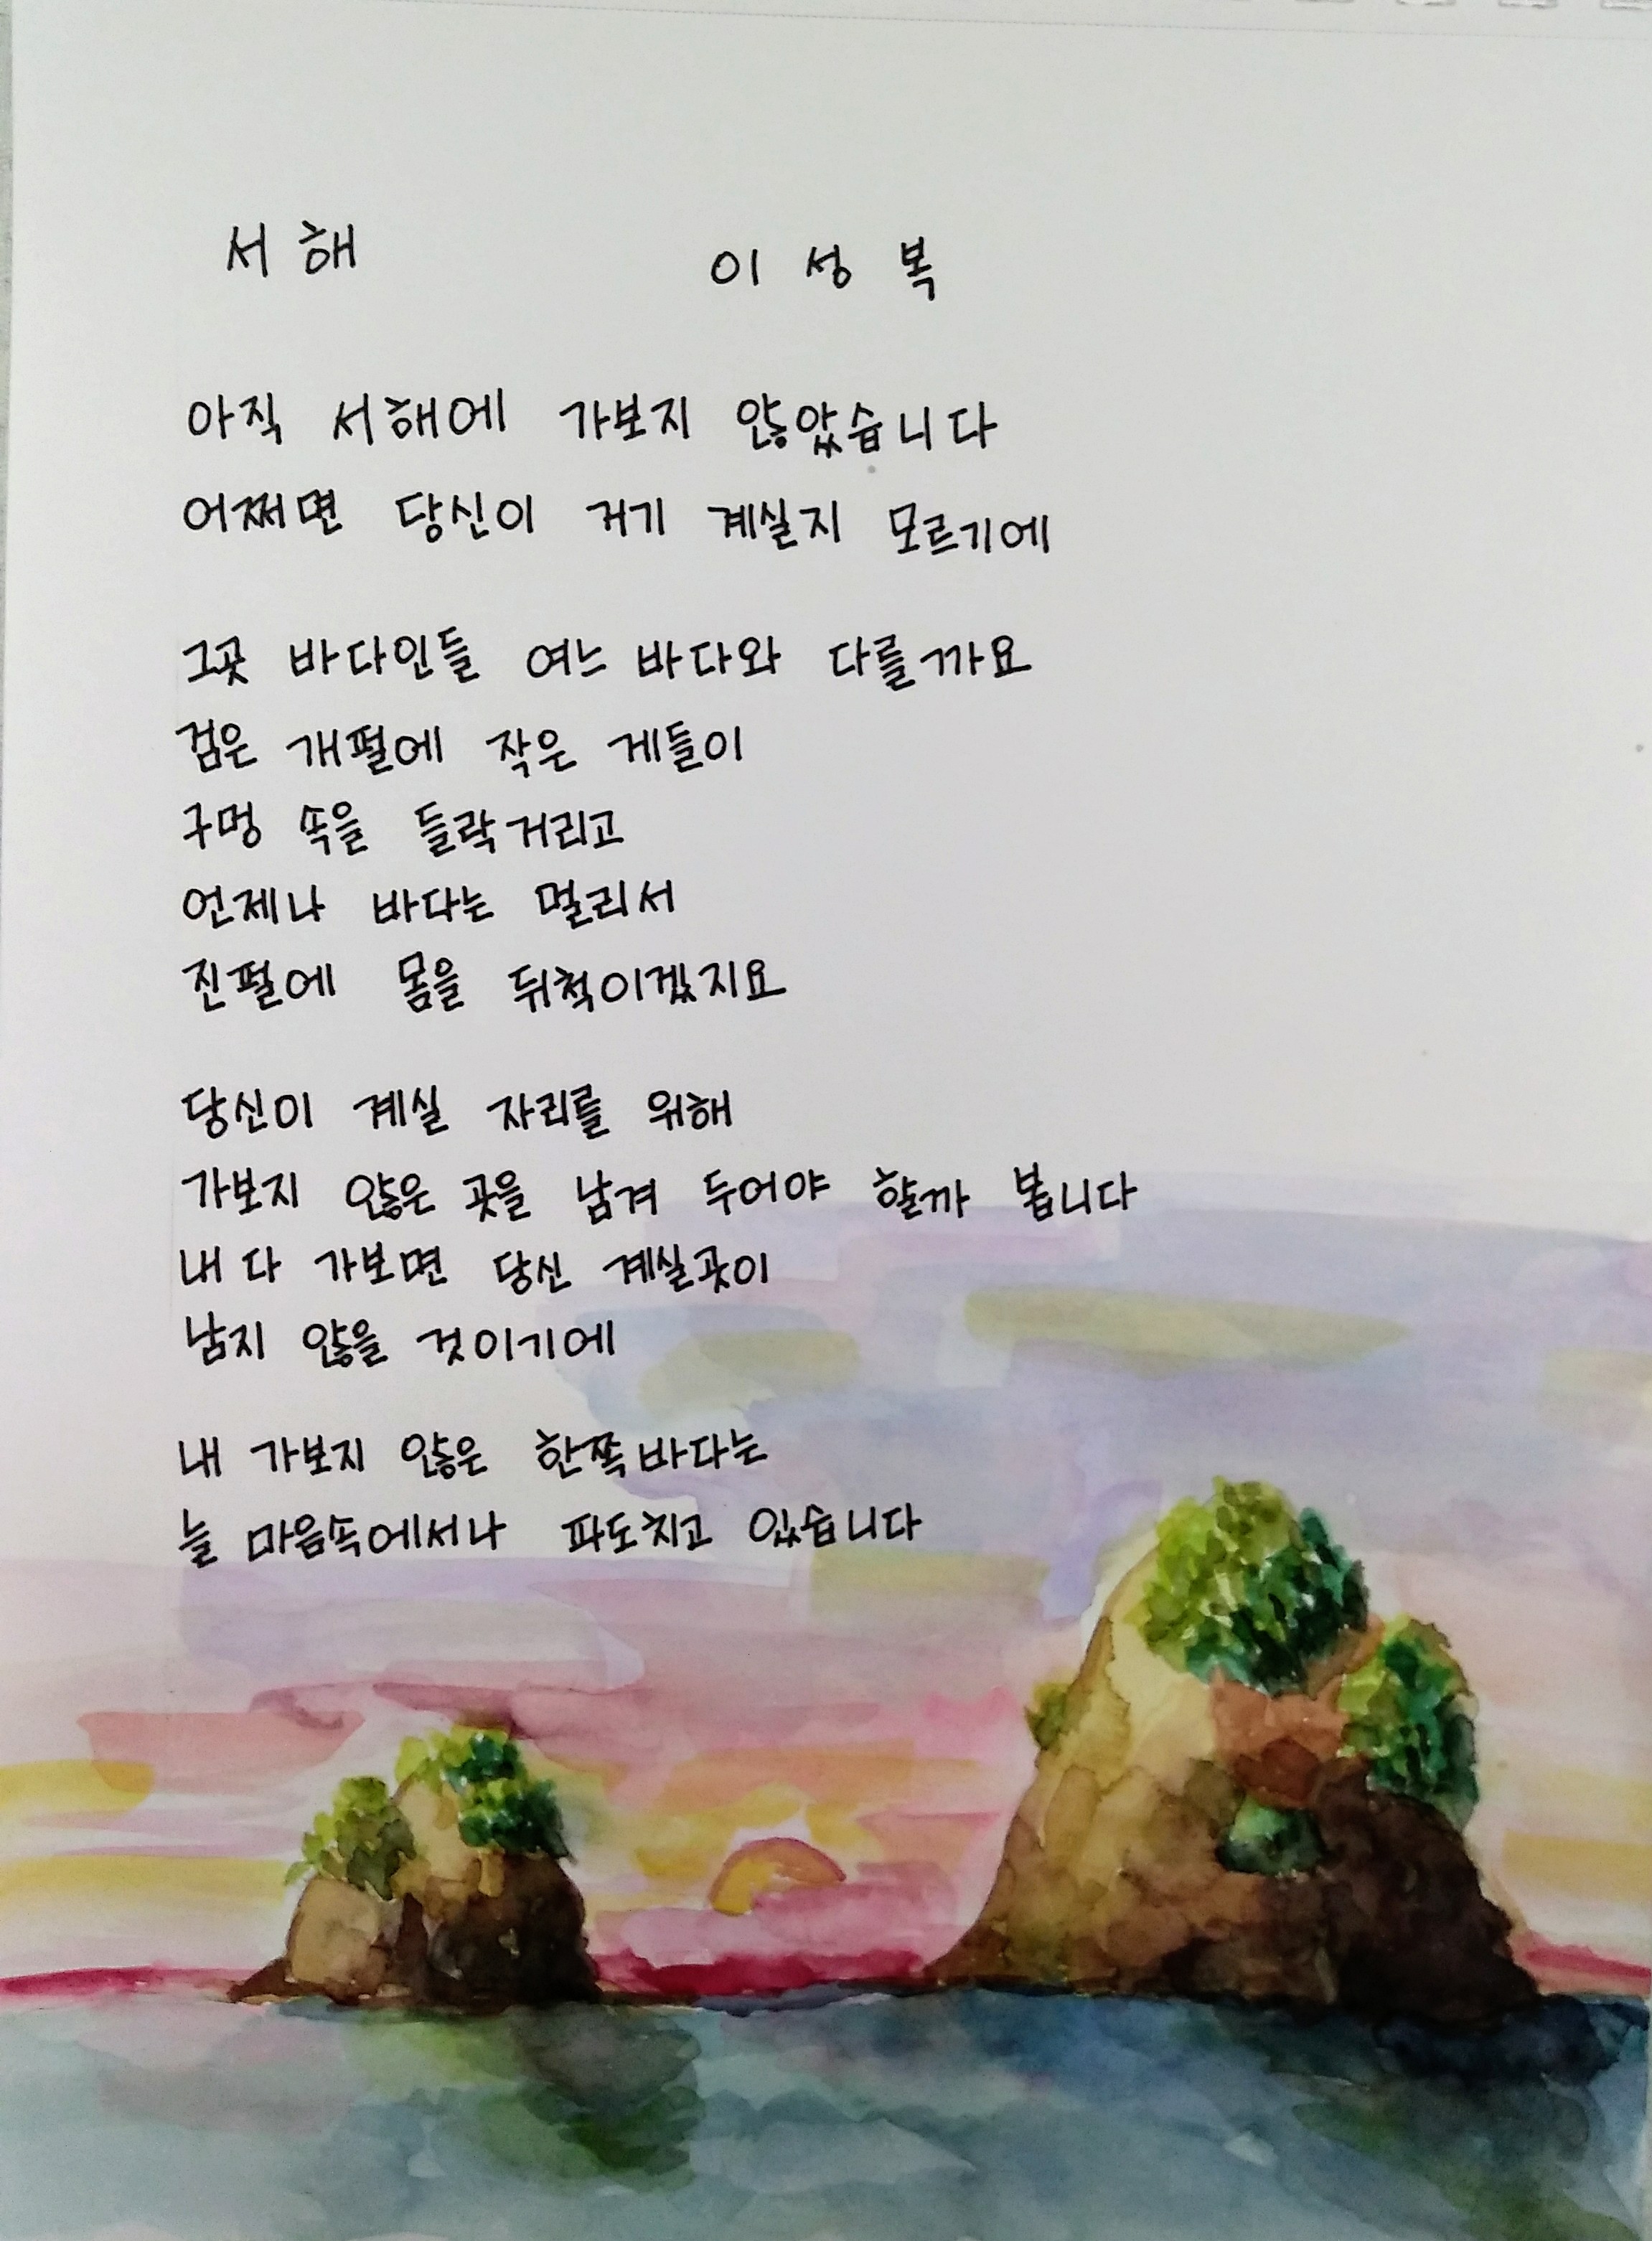 서해 이성복
아직 서해에 가보지 않았습니다
어쩌면 당신이 거기 계실지 모르기에
그곳 바다인들 여느 바다와 다를까요
검은 개펄에 작은 게들이
구멍 속을 들락거리고
언제나 바다는 멀리서
진펄에 몸을 뒤척이겠지요
당신이 계실 자리를 위해
가보지 않은 곳을 남겨 두어야 할까 봅니다
내 다 가보면 당신 계실곳이
남지 않을 것이기에
내 가보지 않은 한쪽바다는
늘 마음속에서나 파도치고 있습니다